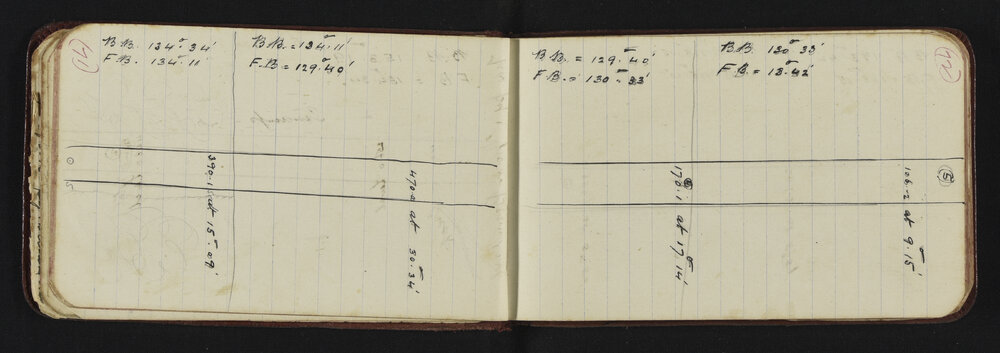 B.B. 134°.34'
F.B. 134°.11'
B.B. = 134°.11'
F.B = 129°.40'
O
5
390.1 at 15°.09'
470.2 at 30°.34'
B.B. = 129°.40'
F.B. = 130°.33'
B.B. 130°33'
F.B. = 13°.42'
170.1 at 17°.14'
106.2 at 9°.15'
5